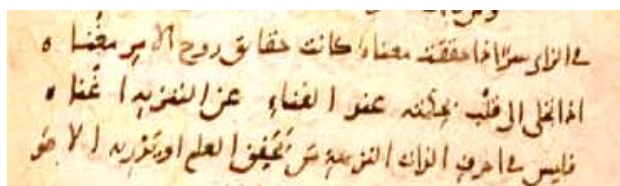 في الزاي سر اذا حققت معناه كانت حقائق روح الامر مغناه
اذا تجلى الى قلب بحكمته عند الفناء عن التنزيه اغناه
فليس في احرف الذات النزيهة من يحقق العلم او يدريه الا هو